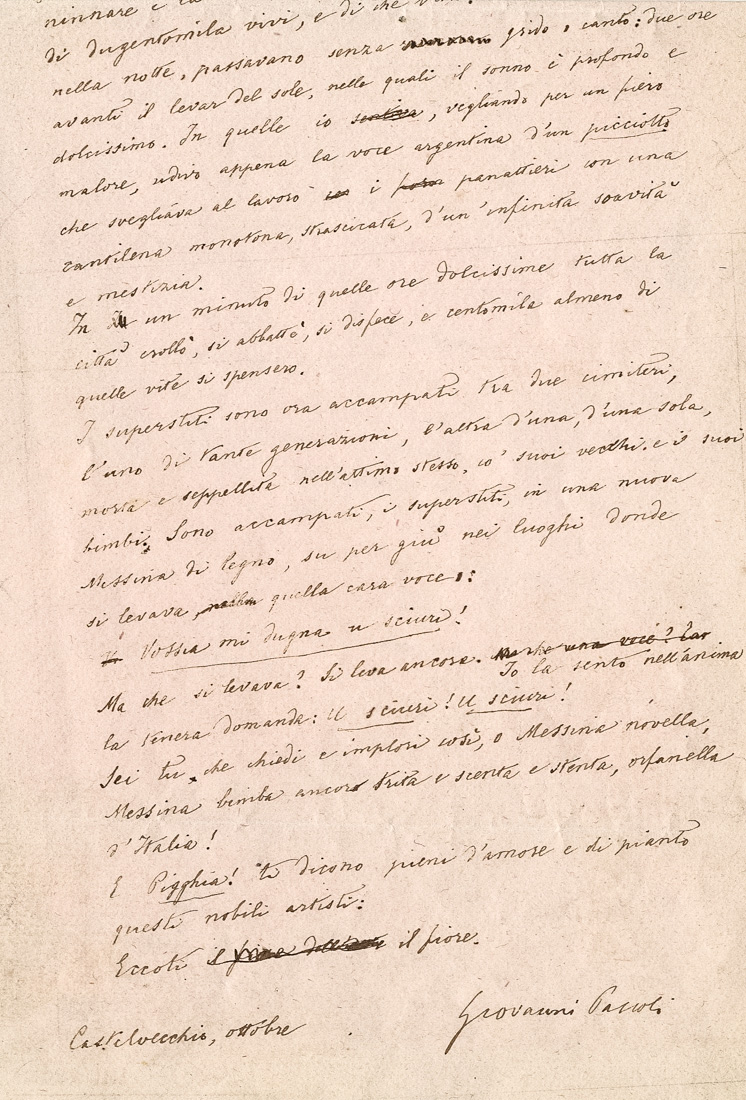 ninnare e
di dugentomila vivi, e di che
nella notte, passavano senza grido, canto: due ore
avanti il levar del sole, nelle quali il sonno è profondo e
dolcissimo. In quelle io sentiva, vegliando per un fiero
malore, udivo appena la voce argentina d'un picciotto
che svegliava al lavoro i forn panattieri con una
cantilena monotona, strascicata, d'un'infinita soavità
e mestizia.
In un minuto di quelle ore dolcissime tutta la
città crollò, si abbattè, si disfece, e centomila almeno di
quelle vite si spensero.
I superstiti sono ora accampati tra due cimiteri,
l'uno di tante generazioni, l'altra d'una, d'una sola,
morta e seppellita nell'attimo stesso, co' suoi vecchi e i suoi
bimbi. Sono accampati, i superstiti, in una nuova
Messina di legno, su per giù nei luoghi donde
si levava, nella quella cara voce:
Vossia mi dugna u sciuri!
Ma che si levava? Si leva ancora. Ma che una voce?
Io la sento nell'anima
la tenera domanda: U sciuri! U sciuri!
Sei tu che chiedi e implori così, o Messina novella,
Messina bimba ancora trita e scenta e stenta, orfanella
d'Italia!
E Pigghia! ti dicono pieni d'amore e di pianto
questi nobili artisti:
Eccoti il fiore.
Castelvecchio, ottobre
Giovanni Pascoli